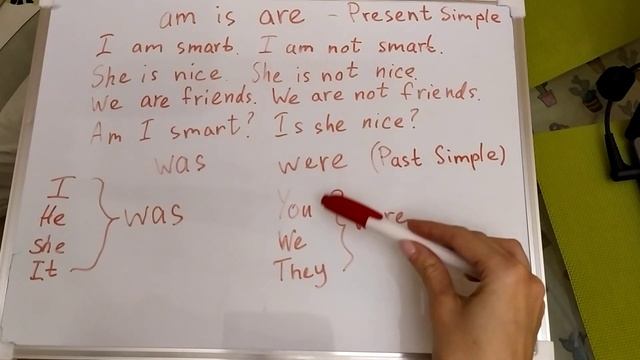 am is are - Present Simple
I am smart. I am not smart.
She is nice. She is not nice.
We are friends. We are not friends.
Am I smart? Is she nice?
was were (Past Simple)
I
He
She
It
was
You
We
They